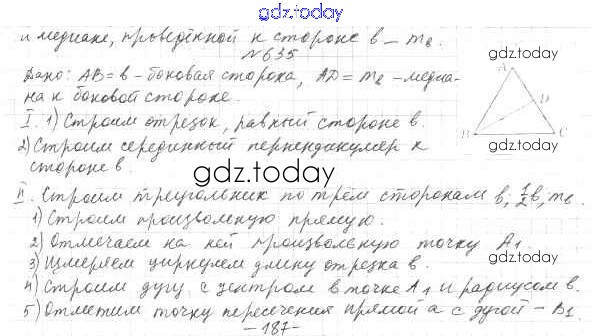 gdz.today
и медиане, проведённой к стороне b – m_b.
№635
gdz.today
Дано: AB = b – боковая сторона, AD = m_b – медиа-
на к боковой стороне.
A
D
B
C
I. 1) Строим отрезок, равный стороне b.
2) Строим серединный перпендикуляр к
стороне b.
gdz.today
gdz.today
II. Строим треугольник по трём сторонам b, ½b, m_b.
1) Строим произвольную прямую.
2) Отмечаем на ней произвольную точку A₁.
gdz.today
3) Измеряем циркулем длину отрезка b.
4) Строим дугу с центром в точке A₁ и радиусом b.
5) Отметим точку пересечения прямой a с дугой – B₁.
– 187 –
gdz.today